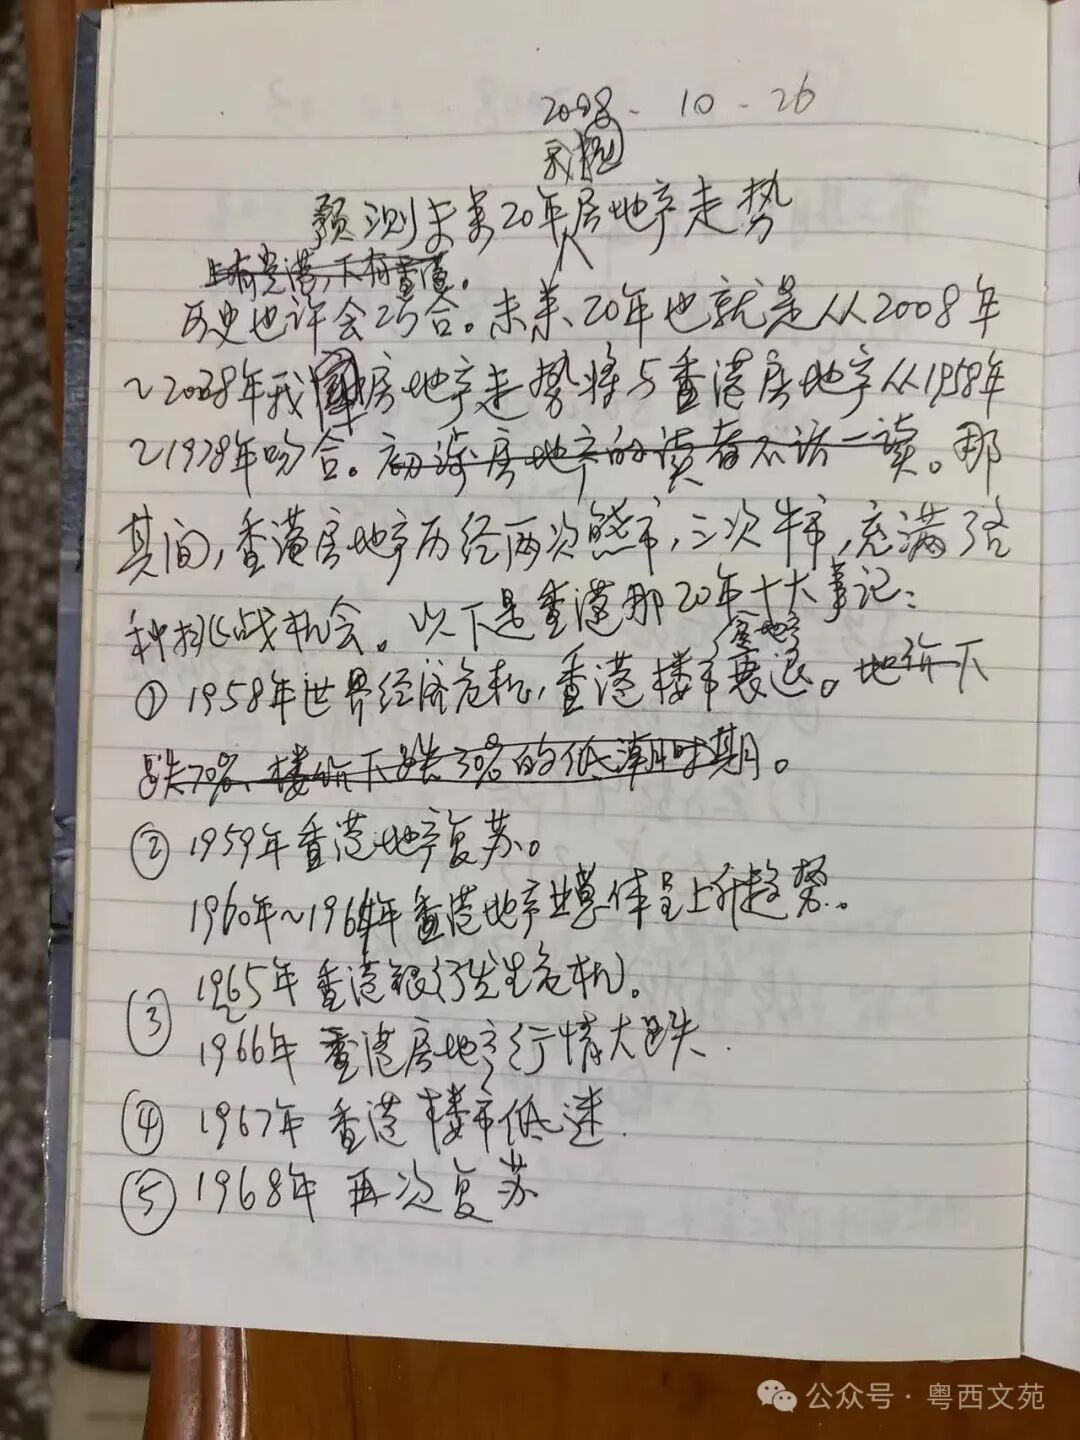 2008-10-26
我国
预测未来20年房地产走势
上有贵港,下有香港。
历史也许会巧合。未来20年也就是从2008年
~2028年我国房地产走势将与香港房地产从1958年
~1978年吻合。房地产的读者不话一读。那
其间,香港房地产历经两次熊市,三次牛市,充满了各
种挑战机会。以下是香港那20年十大事记:
房地产
①1958年世界经济危机,香港楼市衰退。地价下
跌70%、楼价下跌30%的低潮时期。
②1959年香港地产复苏。
1960年~1964年香港地产业总体呈上升趋势。
1965年香港银行发生危机。
③
1966年香港房地产行情大跌.
④1967年香港楼市低迷.
⑤1968年再次复苏
公众号·粤西文苑